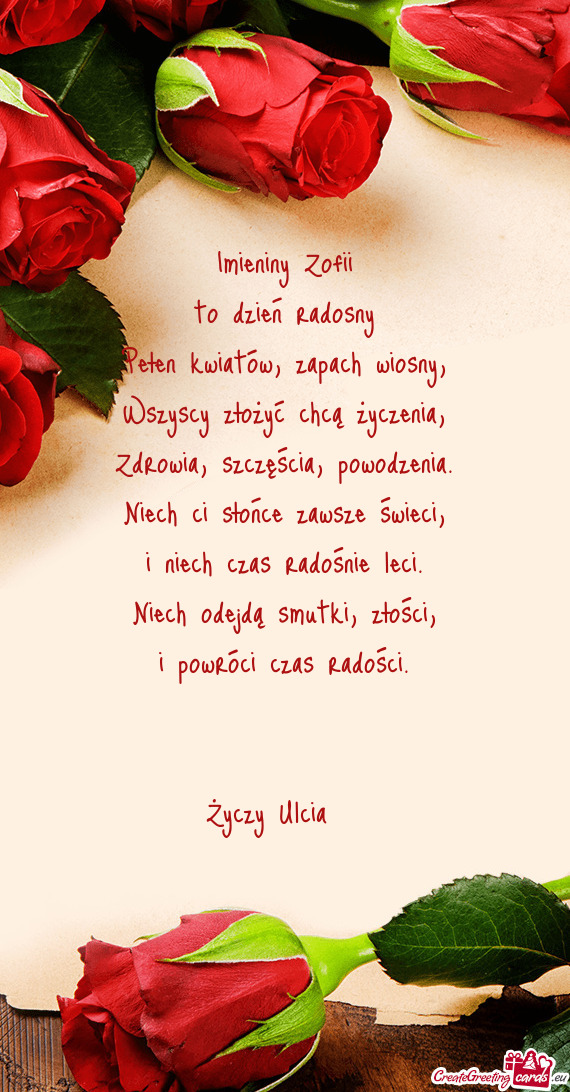 Imieniny Zofii
to dzień radosny
Pełen kwiatów, zapach wiosny,
Wszyscy złożyć chcą życzenia,
Zdrowia, szczęścia, powodzenia.
Niech ci słońce zawsze świeci,
i niech czas radośnie leci.
Niech odejdą smutki, złości,
i powróci czas radości.
Życzy Ulcia
CreateGreetingcards.eu